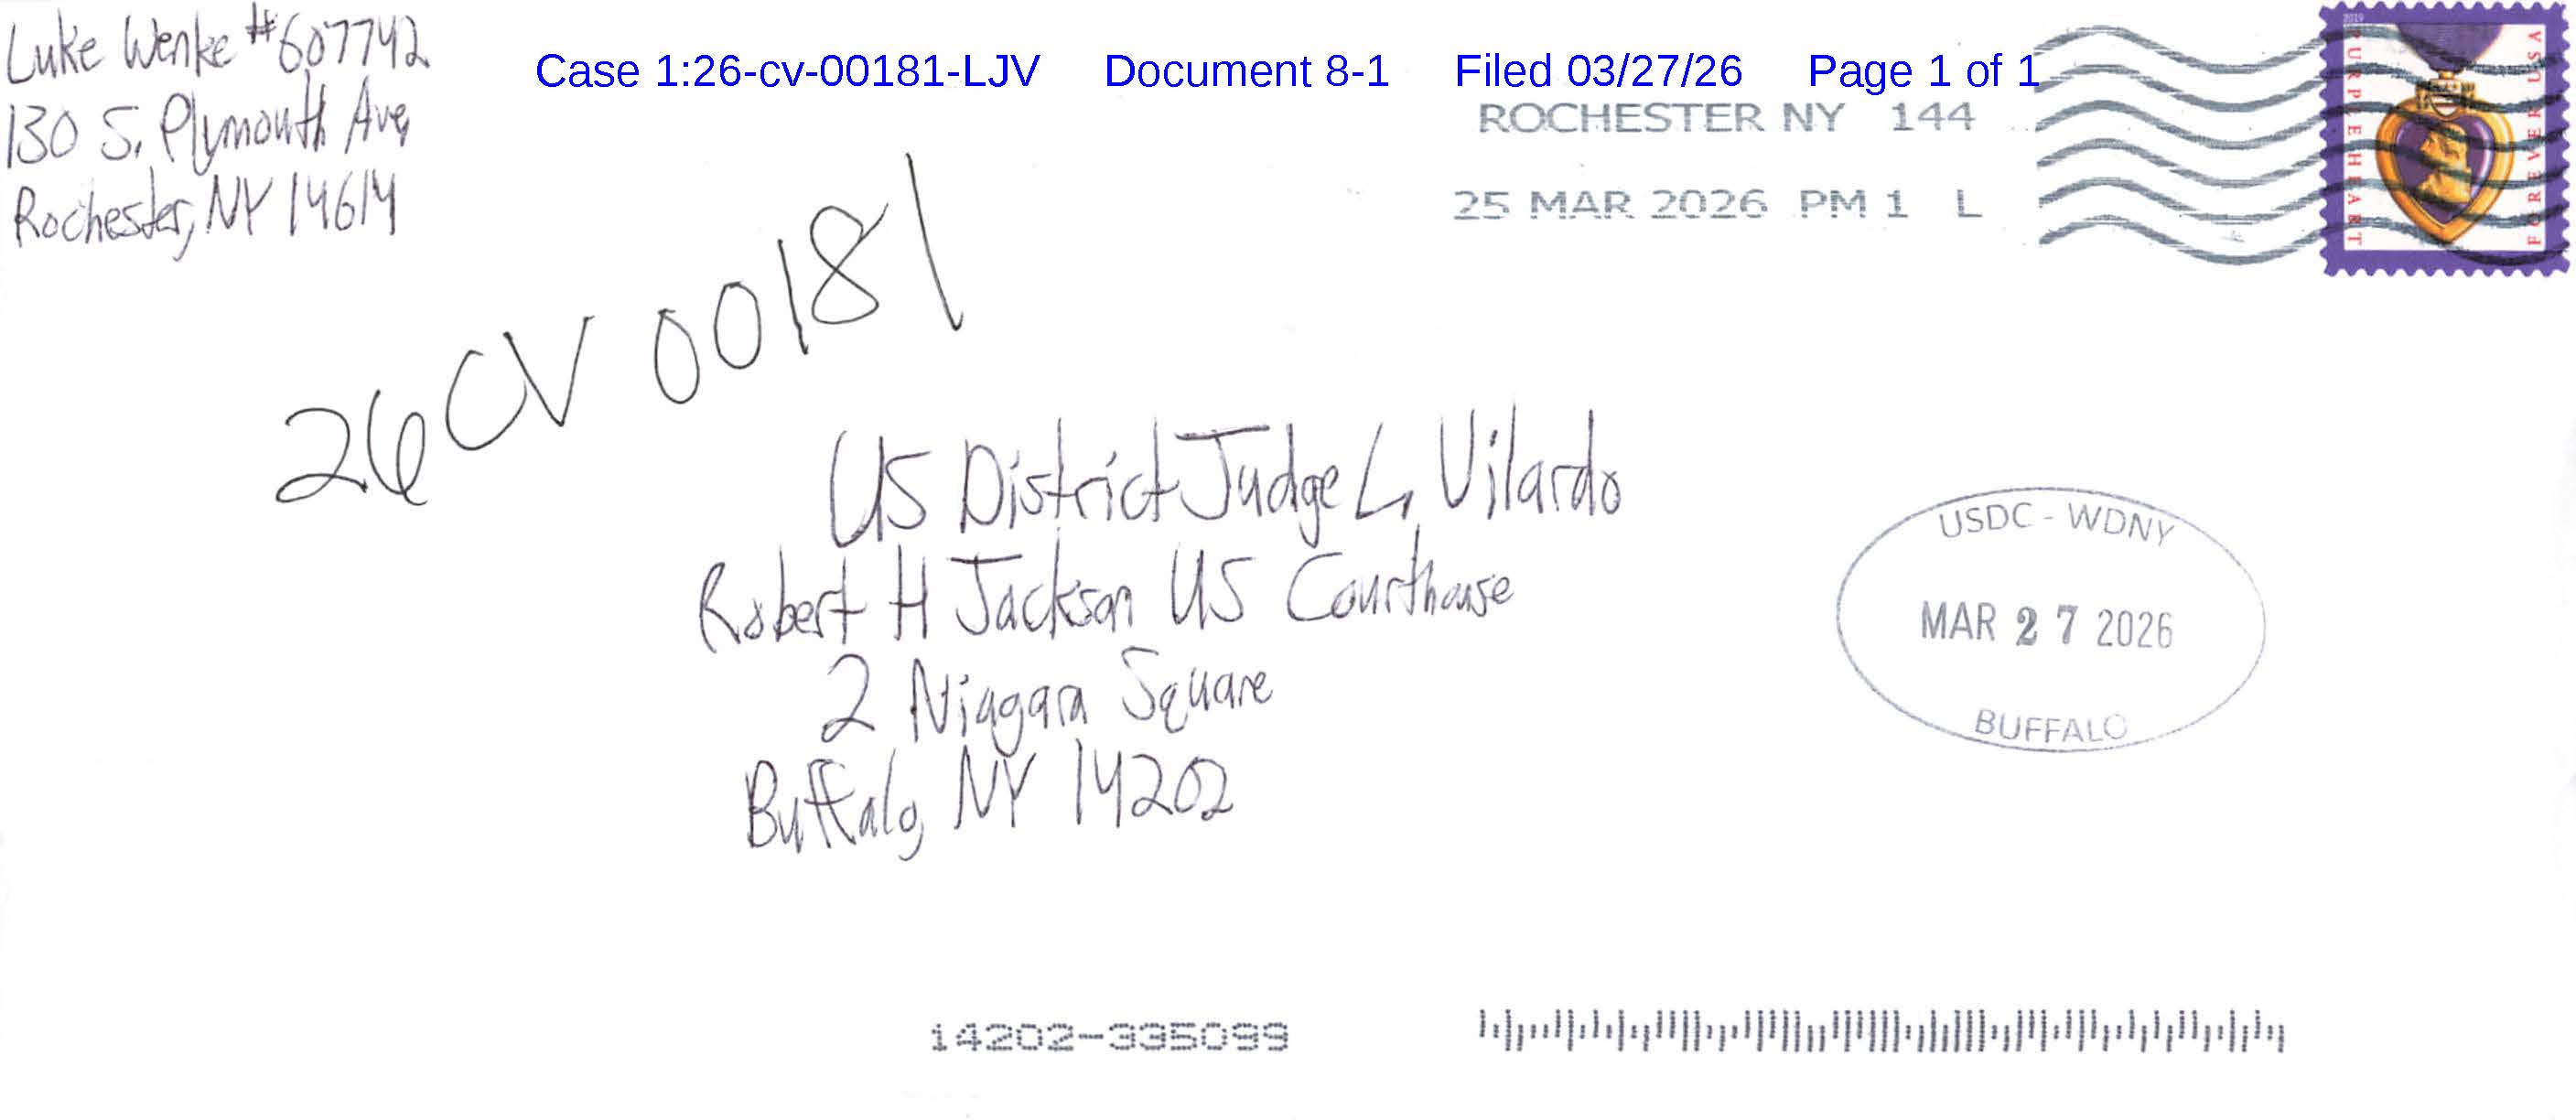 Luke Wenke #607742
130 S. Plymouth Ave,
Rochester, NY 14614
Case 1:26-cv-00181-LJV Document 8-1 Filed 03/27/26 Page 1 of 1
ROCHESTER NY 144
25 MAR 2026 PM 1 L
2019
PURPLE HEART
FOREVER USA
26 CV 00181
US District Judge L. Vilardo
Robert H Jackson US Courthouse
2 Niagara Square
Buffalo, NY 14202
USDC - WDNY
MAR 27 2026
BUFFALO
14202-335099